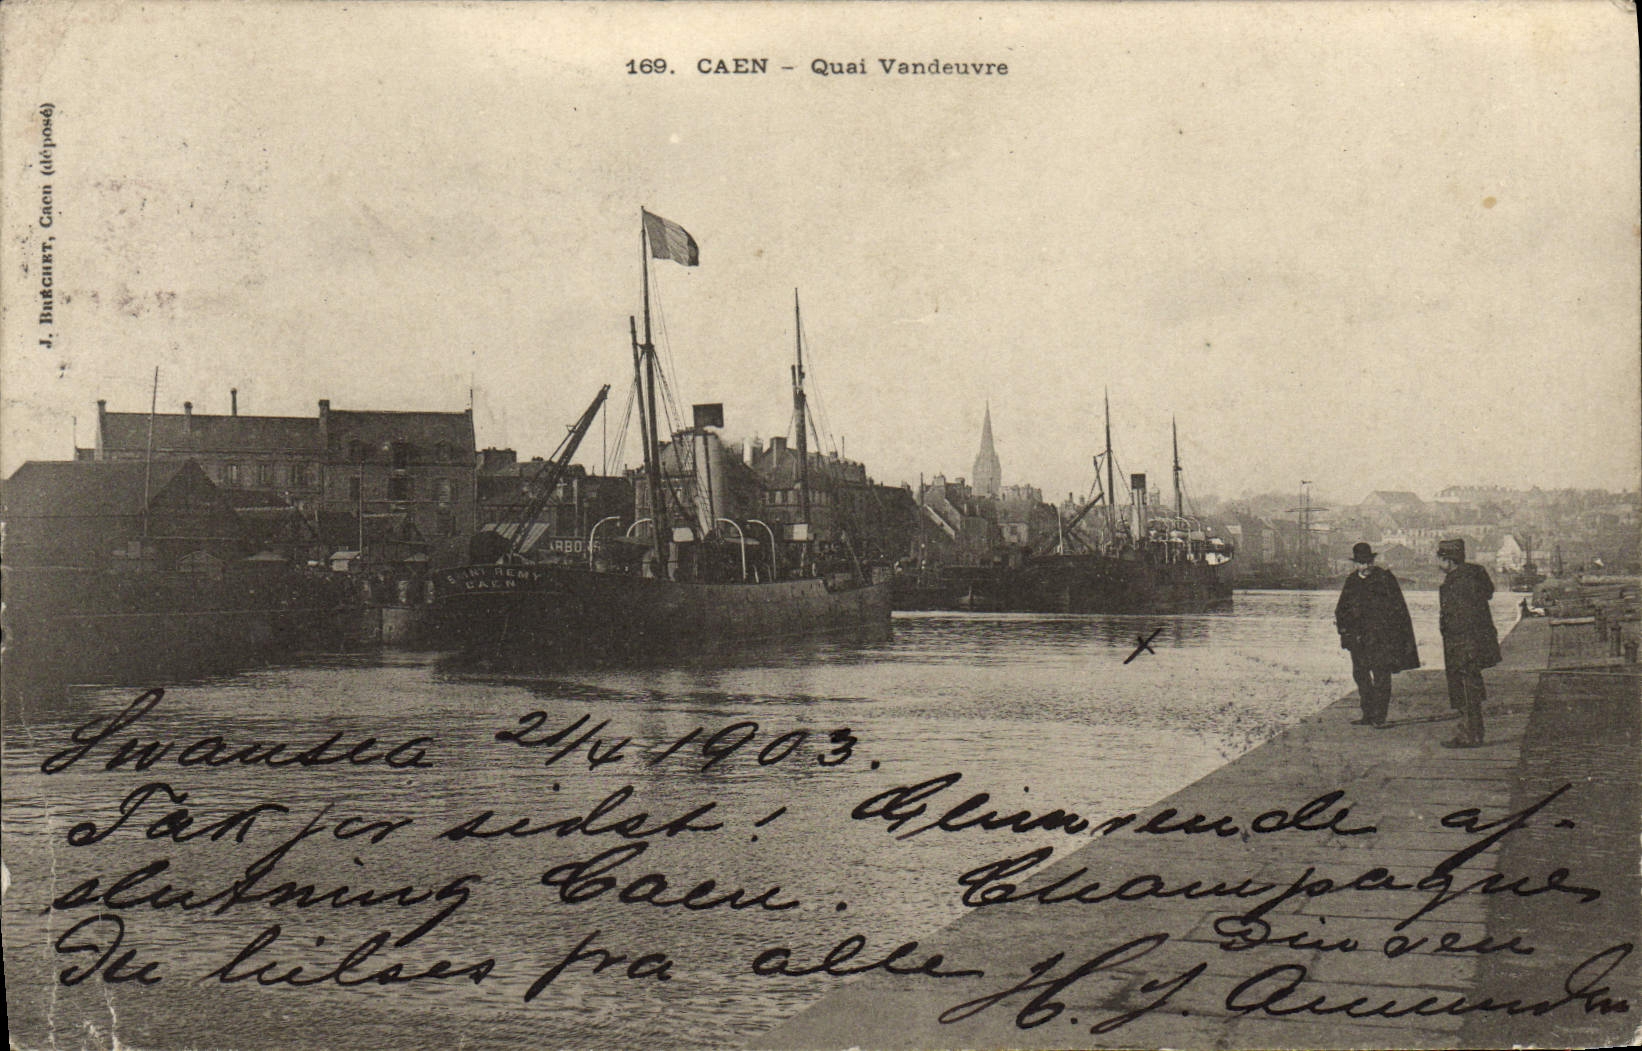 169. CAEN – Quai Vandeuvre
J. BRÉCHET, Caen (déposé)
SAINT REMY
CAEN
Swansea 21/4 1903.
Tak for sidst! Glimrende af-
slutning Caen. Champagne
Du hilses fra alle
Din ven
H. J. Amundsen